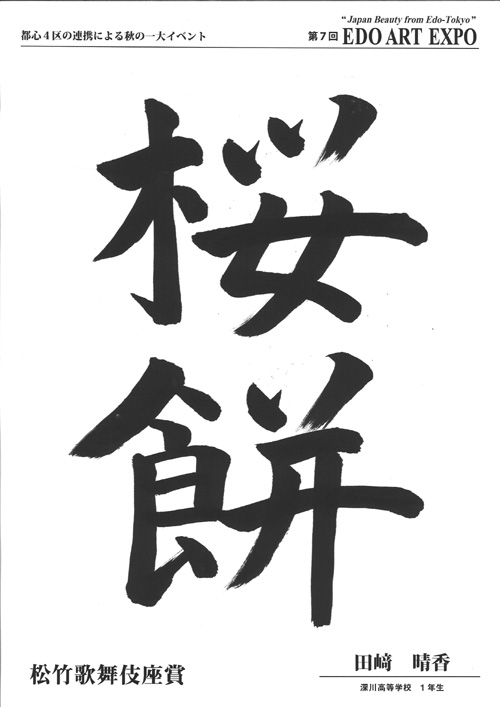 都心４区の連携による秋の一大イベント
"Japan Beauty from Edo-Tokyo"
第７回 EDO ART EXPO
桜
餅
松竹歌舞伎座賞
田﨑　晴香
深川高等学校　１年生